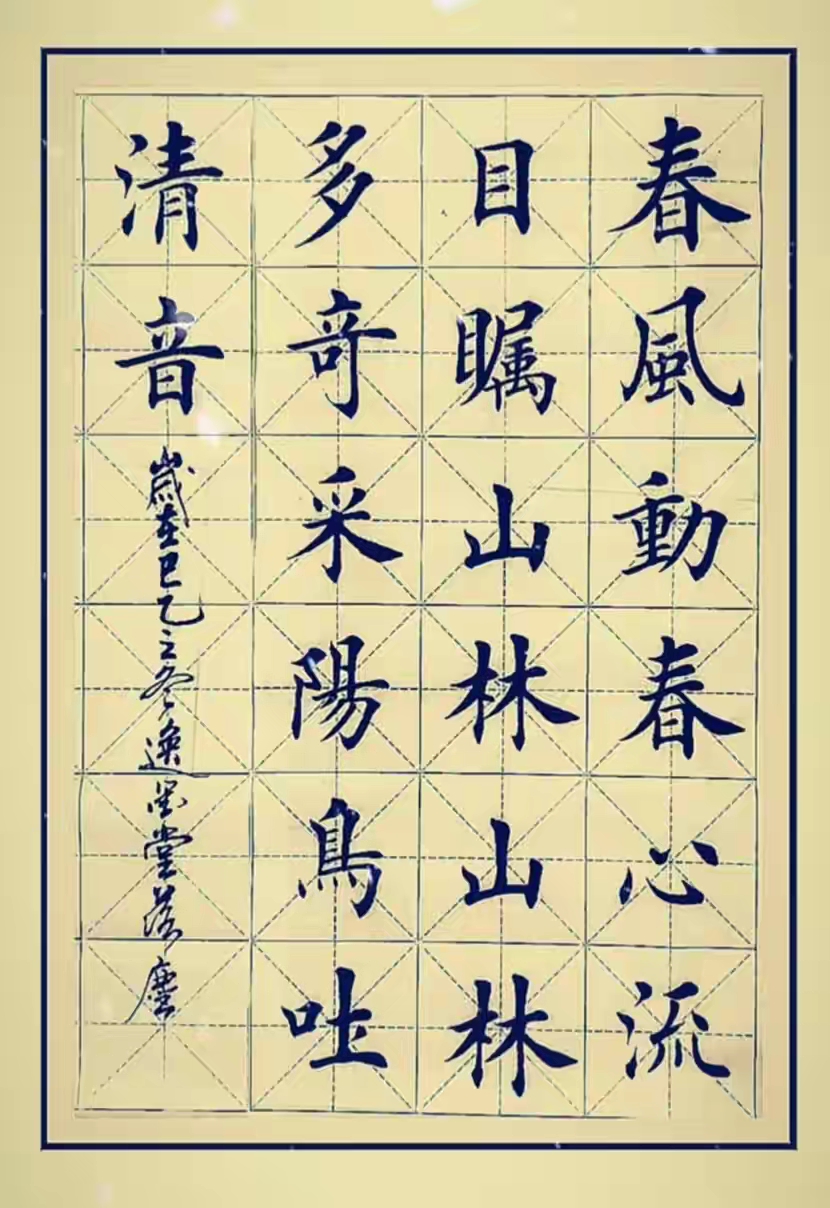 春風動春心流
目瞩山林山林
多竒采陽鳥吐
清音
歲在己乙之冬逸墨堂落塵